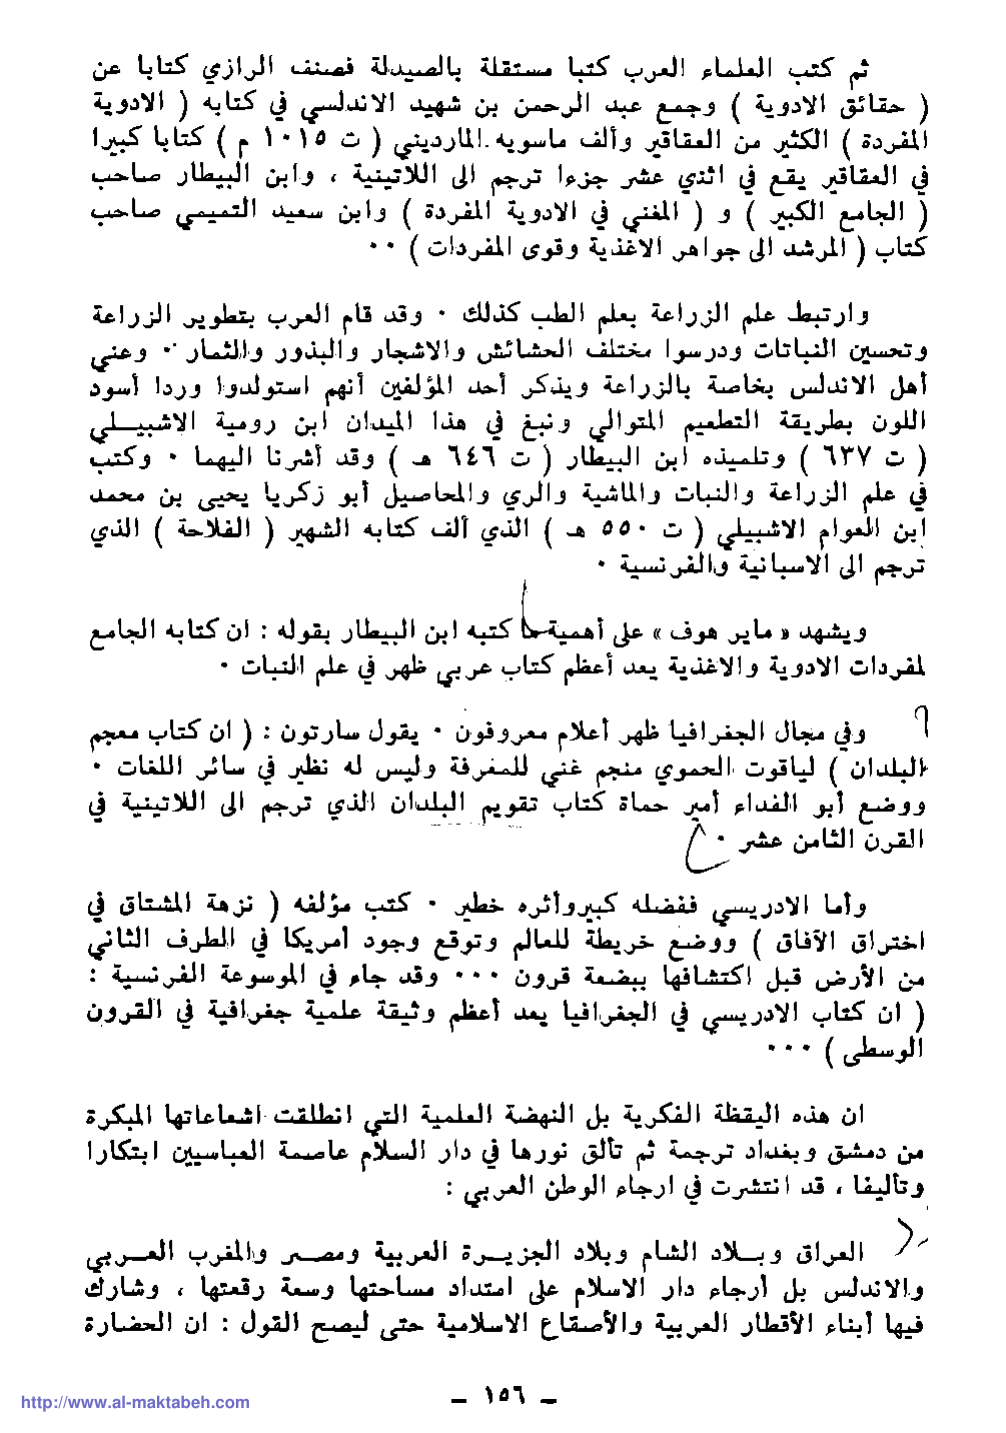 ثم كتب العلماء العرب كتبا مستقلة بالصيدلة فصنف الرازي كتابا عن
( حقائق الادوية ) وجمع عبد الرحمن بن شهيد الاندلسي في كتابه ( الادوية
المفردة ) الكثير من العقاقير وألف ماسويه المارديني ( ت ١٠١٥ م ) كتابا كبيرا
في العقاقير يقع في اثني عشر جزءا ترجم الى اللاتينية ، وابن البيطار صاحب
( الجامع الكبير ) و ( المغني في الادوية المفردة ) وابن سعيد التميمي صاحب
كتاب ( المرشد الى جواهر الاغذية وقوى المفردات ) ٠٠
وارتبط علم الزراعة بعلم الطب كذلك ٠ وقد قام العرب بتطوير الزراعة
وتحسين النباتات ودرسوا مختلف الحشائش والاشجار والبذور والثمار ٠ وعني
أهل الاندلس بخاصة بالزراعة ويذكر أحد المؤلفين أنهم استولدوا وردا أسود
اللون بطريقة التطعيم المتوالي ونبغ في هذا الميدان ابن رومية الاشبيـــلي
( ت ٦٣٧ ) وتلميذه ابن البيطار ( ت ٦٤٦ هـ ) وقد أشرنا اليهما ٠ وكتب
في علم الزراعة والنبات والماشية والري والمحاصيل أبو زكريا يحيى بن محمد
ابن العوام الاشبيلي ( ت ٥٥٠ هـ ) الذي ألف كتابه الشهير ( الفلاحة ) الذي
ترجم الى الاسبانية والفرنسية ٠
ويشهد « ماير هوف » على أهمية ما كتبه ابن البيطار بقوله : ان كتابه الجامع
لمفردات الادوية والاغذية يعد أعظم كتاب عربي ظهر في علم النبات ٠
وفي مجال الجغرافيا ظهر أعلام معروفون ٠ يقول سارتون : ( ان كتاب معجم
البلدان ) لياقوت الحموي منجم غني للمعرفة وليس له نظير في سائر اللغات ٠
ووضع أبو الفداء أمير حماة كتاب تقويم البلدان الذي ترجم الى اللاتينية في
القرن الثامن عشر ٠
وأما الادريسي ففضله كبير وأثره خطير ٠ كتب مؤلفه ( نزهة المشتاق في
اختراق الآفاق ) ووضع خريطة للعالم وتوقع وجود أمريكا في الطرف الثاني
من الأرض قبل اكتشافها ببضعة قرون ٠٠٠ وقد جاء في الموسوعة الفرنسية :
( ان كتاب الادريسي في الجغرافيا يعد أعظم وثيقة علمية جغرافية في القرون
الوسطى ) ٠٠٠
ان هذه اليقظة الفكرية بل النهضة العلمية التي انطلقت اشعاعاتها المبكرة
من دمشق وبغداد ترجمة ثم تألق نورها في دار السلام عاصمة العباسيين ابتكارا
وتأليفا ، قد انتشرت في ارجاء الوطن العربي :
العراق وبـــلاد الشام وبلاد الجزيــرة العربية ومصــر والمغرب العــربي
والاندلس بل أرجاء دار الاسلام على امتداد مساحتها وسعة رقعتها ، وشارك
فيها أبناء الأقطار العربية والأصقاع الاسلامية حتى ليصح القول : ان الحضارة
ـ ١٥٦ ـ
http://www.al-maktabeh.com